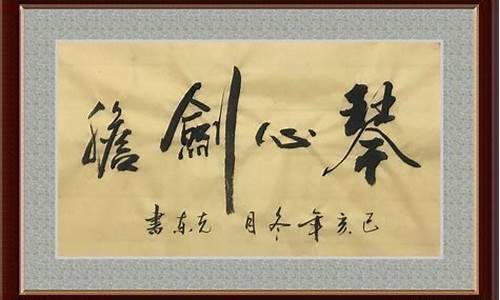 琴心劍膽
己亥年冬月 克東書